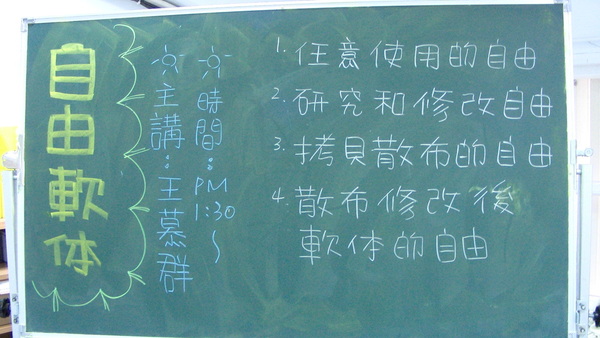 自由軟体
時間：PM 1:30～
主講：王慕群
1. 任意使用的自由
2. 研究和修改自由
3. 拷貝散布的自由
4. 散布修改後
軟体的自由